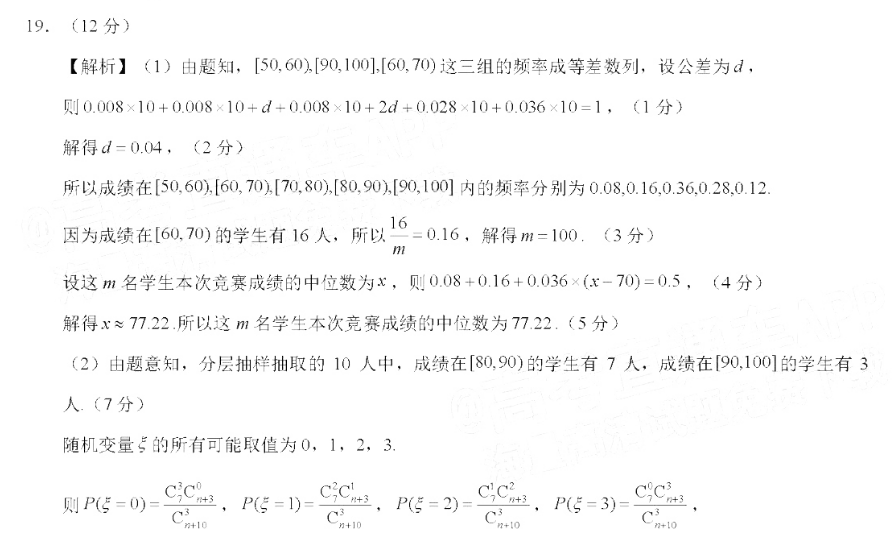 19. （12 分）
【解析】（1）由题知，[50,60),[90,100],[60,70) 这三组的频率成等差数列，设公差为 d，
则 0.008×10+0.008×10+d+0.008×10+2d+0.028×10+0.036×10=1，（1 分）
解得 d=0.04，（2 分）
所以成绩在[50,60),[60,70),[70,80),[80,90),[90,100] 内的频率分别为 0.08,0.16,0.36,0.28,0.12.
因为成绩在[60,70) 的学生有 16 人，所以 16/m=0.16，解得 m=100.（3 分）
设这 m 名学生本次竞赛成绩的中位数为 x，则 0.08+0.16+0.036×(x−70)=0.5，（4 分）
解得 x≈77.22.所以这 m 名学生本次竞赛成绩的中位数为 77.22.（5 分）
（2）由题意知，分层抽样抽取的 10 人中，成绩在[80,90) 的学生有 7 人，成绩在[90,100] 的学生有 3
人.（7 分）
随机变量 ξ 的所有可能取值为 0，1，2，3.
则 P(ξ=0)=C₇³Cₙ₊₃⁰/Cₙ₊₁₀³，P(ξ=1)=C₇²Cₙ₊₃¹/Cₙ₊₁₀³，P(ξ=2)=C₇¹Cₙ₊₃²/Cₙ₊₁₀³，P(ξ=3)=C₇⁰Cₙ₊₃³/Cₙ₊₁₀³，